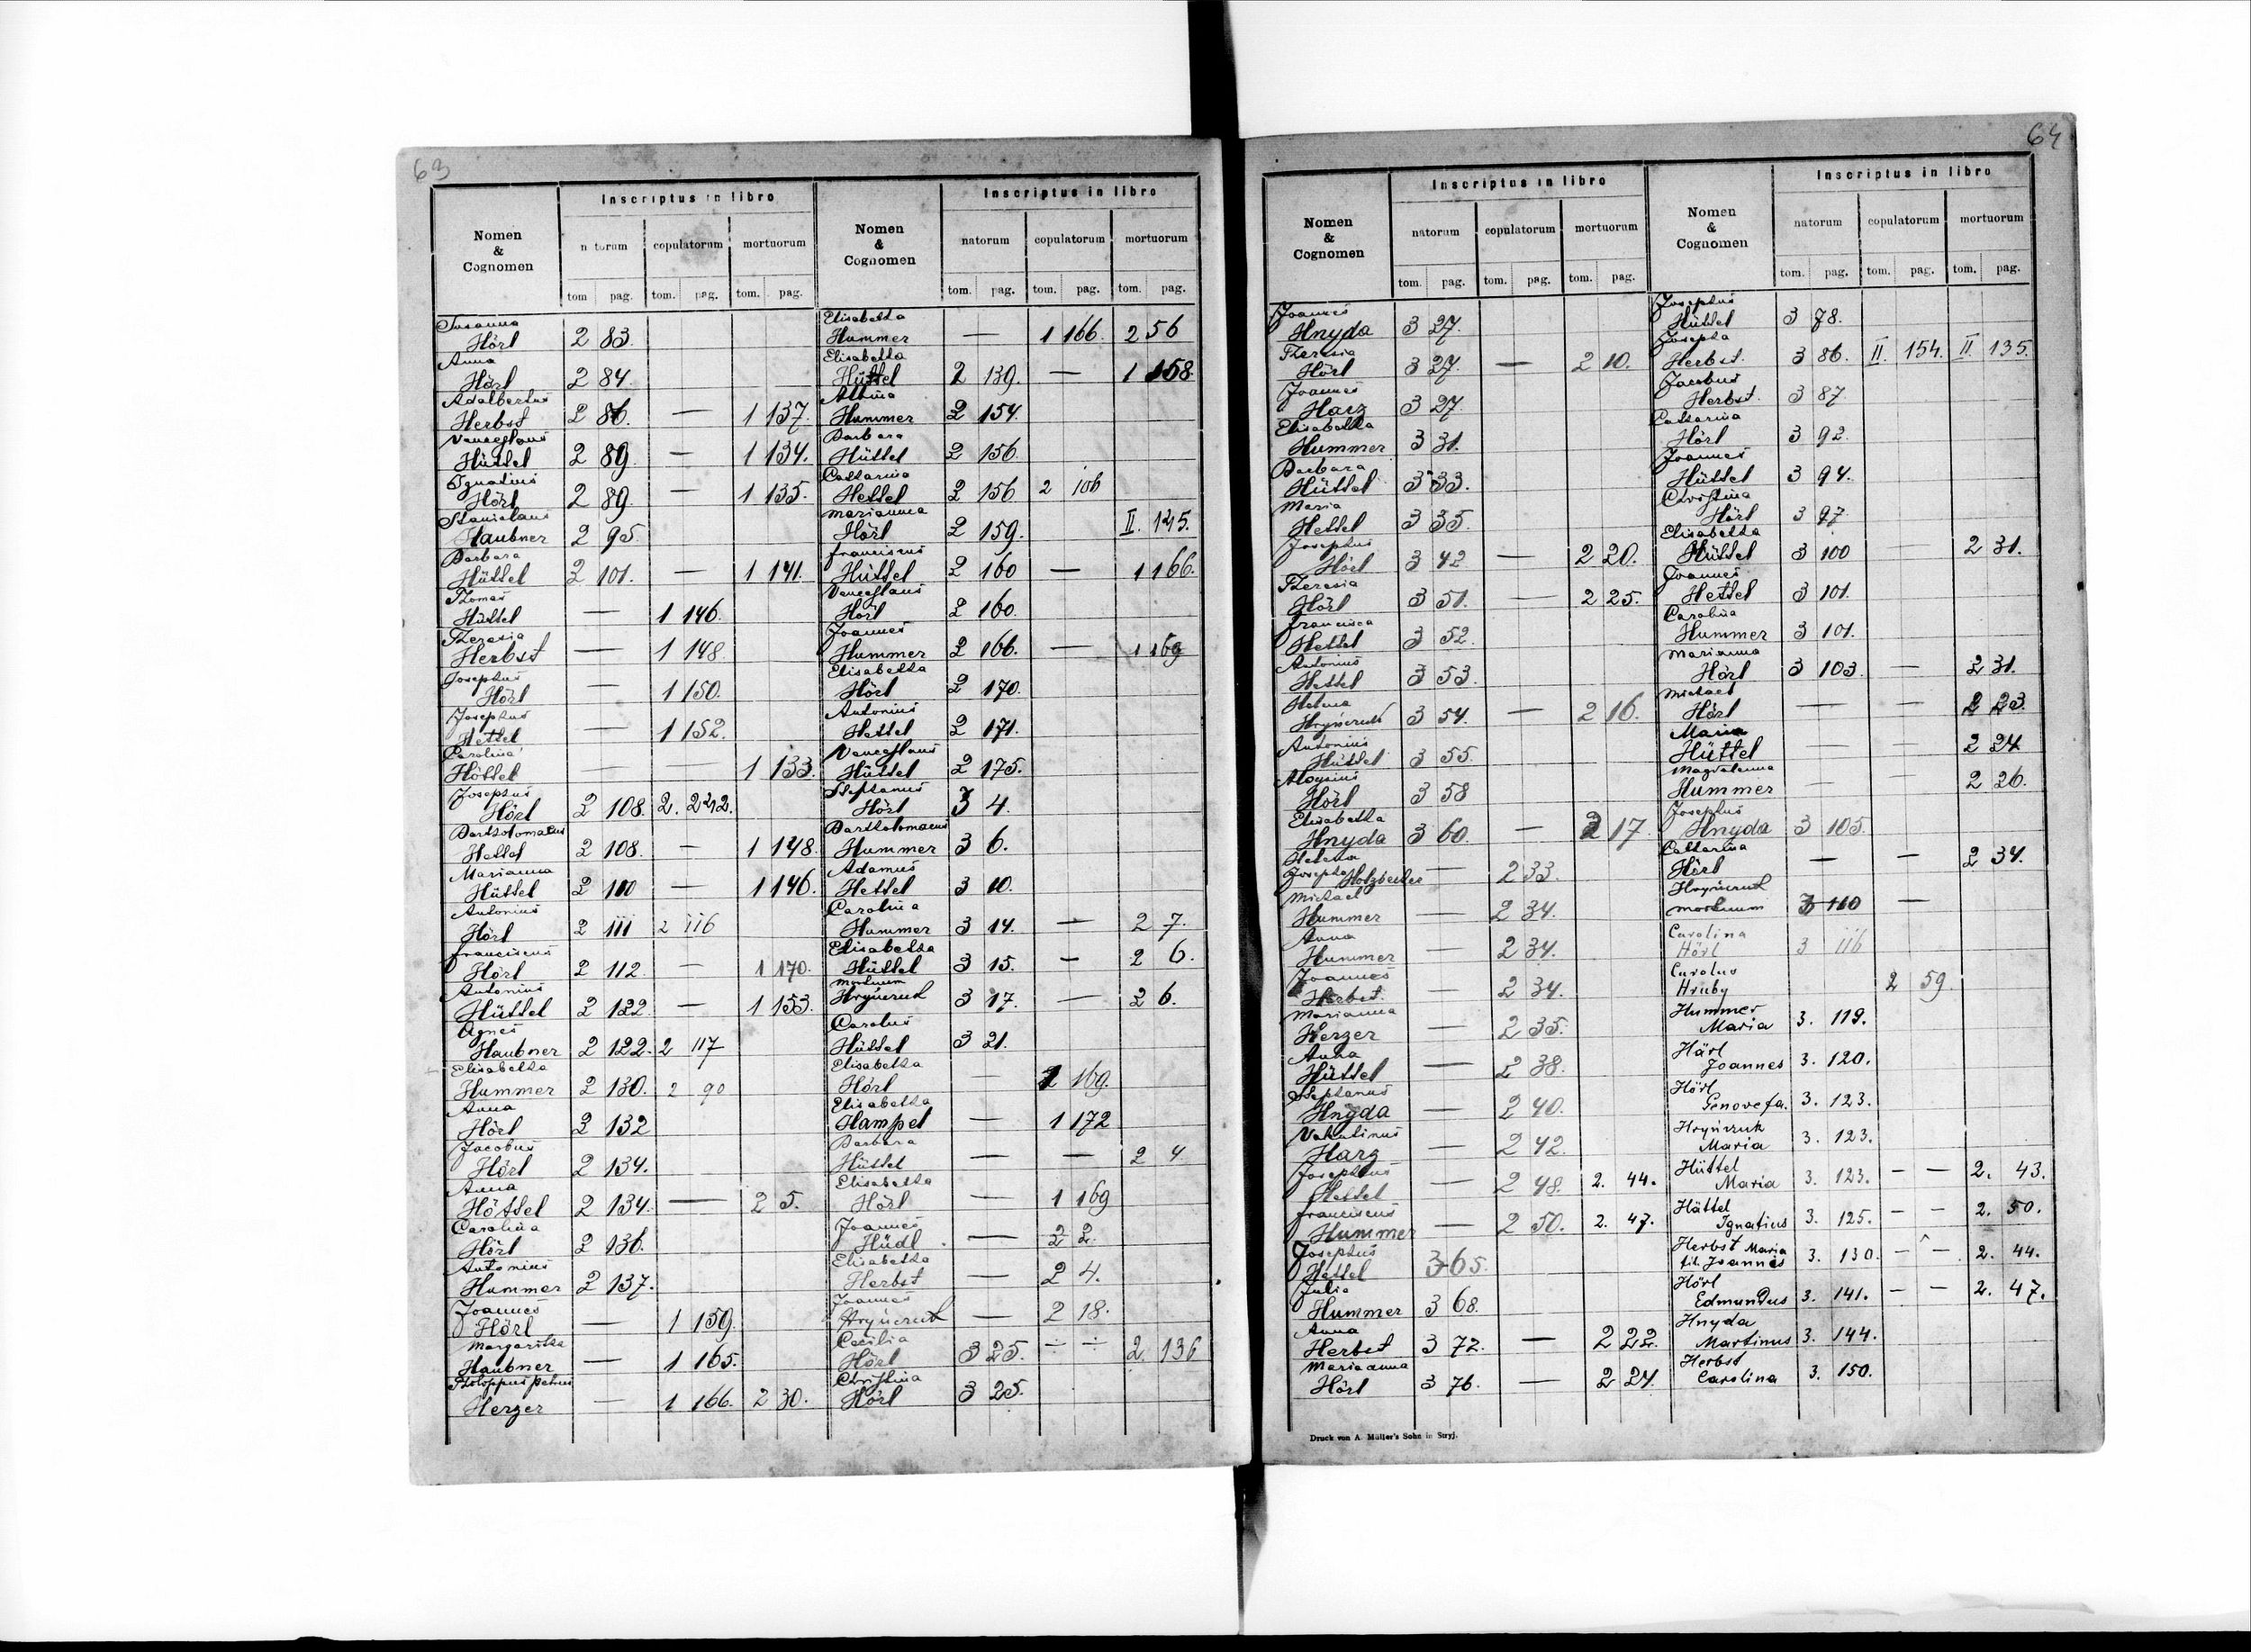 63
Nomen & Cognomen
Inscriptus in libro
n torum copulatorum mortuorum
tom pag. tom. pag. tom. pag.
Susanna
Hörl 2 83.
Anna
Hörl 2 84.
Adalbertus
Herbst 2 86. — 1 137.
Venceslaus
Hüttel 2 89. — 1 134.
Ignatius
Hörl 2 89. — 1 135.
Stanislaus
Haubner 2 95.
Barbara
Hüttel 2 101. — 1 141.
Thomas
Hüttel — 1 146.
Theresia
Herbst — 1 148.
Josephus
Hörl — 1 150.
Josephus
Hettel — 1 152.
Carolina
Höttel — — 1 133.
Josephus
Hörl 2 108. 2. 242.
Bartholomaeus
Hettel 2 108. — 1 148.
Marianna
Hüttel 2 110 — 1 146.
Antonius
Hörl 2 111 2 116
Franciscus
Hörl 2 112. — 1 170.
Antonius
Hüttel 2 122. — 1 153.
Agnes
Haubner 2 122. 2 117
Elisabetha
Hummer 2 130. 2 90
Anna
Hörl 2 132
Jacobus
Hörl 2 134.
Anna
Höttel 2 134. — 2 5.
Carolina
Hörl 2 136.
Antonius
Hummer 2 137.
Joannes
Hörl — 1 159.
Margaritha
Haubner — 1 165.
Philippus Petrus
Herzer — 1 166. 2 30.
Nomen & Cognomen
Inscriptus in libro
natorum copulatorum mortuorum
tom. pag. tom. pag. tom. pag.
Elisabetha
Hummer — 1 166. 2 56
Elisabetha
Hüttel 2 139. — 1 158.
Albina
Hummer 2 154.
Barbara
Hüttel 2 156
Catharina
Hettel 2 156 2 106
Marianna
Hörl 2 159. II. 145.
Franciscus
Hüttel 2 160 — 1 166.
Venceslaus
Hörl 2 160.
Joannes
Hummer 2 166. — 1 169
Elisabetha
Hörl 2 170.
Antonius
Hettel 2 171.
Venceslaus
Hüttel 2 175.
Stephanus
Hörl 3 4.
Bartholomaeus
Hummer 3 6.
Adamus
Hettel 3 10.
Carolina
Hummer 3 14. — 2 7.
Elisabetha
Hüttel 3 15. — 2 6.
mortuum
Hryńczuk 3 17. — 2 6.
Carolus
Hüttel 3 21.
Elisabetha
Hörl — 1 169.
Elisabetha
Hampel — 1 172
Barbara
Hüttel — — 2 4
Elisabetha
Hörl — 1 169
Joannes
Hüdl — 2 2.
Elisabetha
Herbst — 2 4.
Joannes
Hryńczuk — 2 18.
Cecilia
Hörl 3 25. ÷ ÷ 2. 136
Christina
Hörl 3 25.
64
Nomen & Cognomen
Inscriptus in libro
natorum copulatorum mortuorum
tom. pag. tom. pag. tom. pag.
Joannes
Hnyda 3 27.
Theresia
Hörl 3 27. — 2 10.
Joannes
Harz 3 27.
Elisabetha
Hummer 3 31.
Barbara
Hüttel 3 33.
Maria
Hettel 3 35.
Josephus
Hörl 3 42 — 2 20.
Theresia
Hörl 3 51. — 2 25.
Francisca
Hettel 3 52.
Antonius
Hettel 3 53.
Helena
Hryńczuk 3 54. — 2 16.
Antonius
Hüttel 3 55.
Aloysius
Hörl 3 58
Elisabetha
Hnyda 3 60. — 2 17.
Helena
Josepha Holzbecher — 2 33.
Michael
Hummer — 2 34.
Anna
Hummer — 2 34.
Joannes
Herbst — 2 34.
Marianna
Herzer — 2 35.
Anna
Hüttel — 2 38.
Stephanus
Hnyda — 2 40.
Valentinus
Harz — 2 42.
Josephus
Hettel — 2 48. 2. 44.
Franciscus
Hummer — 2 50. 2. 47.
Josephus
Hettel 3 65.
Julia
Hummer 3 68.
Anna
Herbst 3 72. — 2 22.
Marianna
Hörl 3 76. — 2 24.
Nomen & Cognomen
Inscriptus in libro
natorum copulatorum mortuorum
tom. pag. tom. pag. tom. pag.
Josephus
Hüttel 3 78.
Josepha
Herbst. 3 86. II. 154. II. 135.
Jacobus
Herbst. 3 87.
Catharina
Hörl 3 92.
Joannes
Hüttel 3 94.
Christina
Hörl 3 97.
Elisabetha
Hüttel 3 100 — 2 31.
Joannes
Hettel 3 101.
Carolina
Hummer 3 101.
Marianna
Hörl 3 103. — 2 31.
Michael
Hörl — — 2 23.
Maria
Hüttel — — 2 24
Magdalena
Hummer — — 2 26.
Josephus
Hnyda 3 105.
Catharina
Hörl — — 2 34.
Hryńczuk
mortuum 3 110 —
Carolina
Hörl 3 116
Carolus
Hruby 2 59.
Hummer
Maria 3. 119.
Härl
Joannes 3. 120.
Hörl
Genovefa. 3. 123.
Hryńczuk
Maria 3. 123.
Hüttel
Maria 3. 123. — — 2. 43.
Hüttel
Ignatius 3. 125. — — 2. 50.
Herbst Maria
fil. Joannis 3. 130. — — 2. 44.
Hörl
Edmundus 3. 141. — — 2. 47.
Hnyda
Martinus 3. 144.
Herbst
Carolina 3. 150.
Druck von A. Müller's Sohn in Stryj.